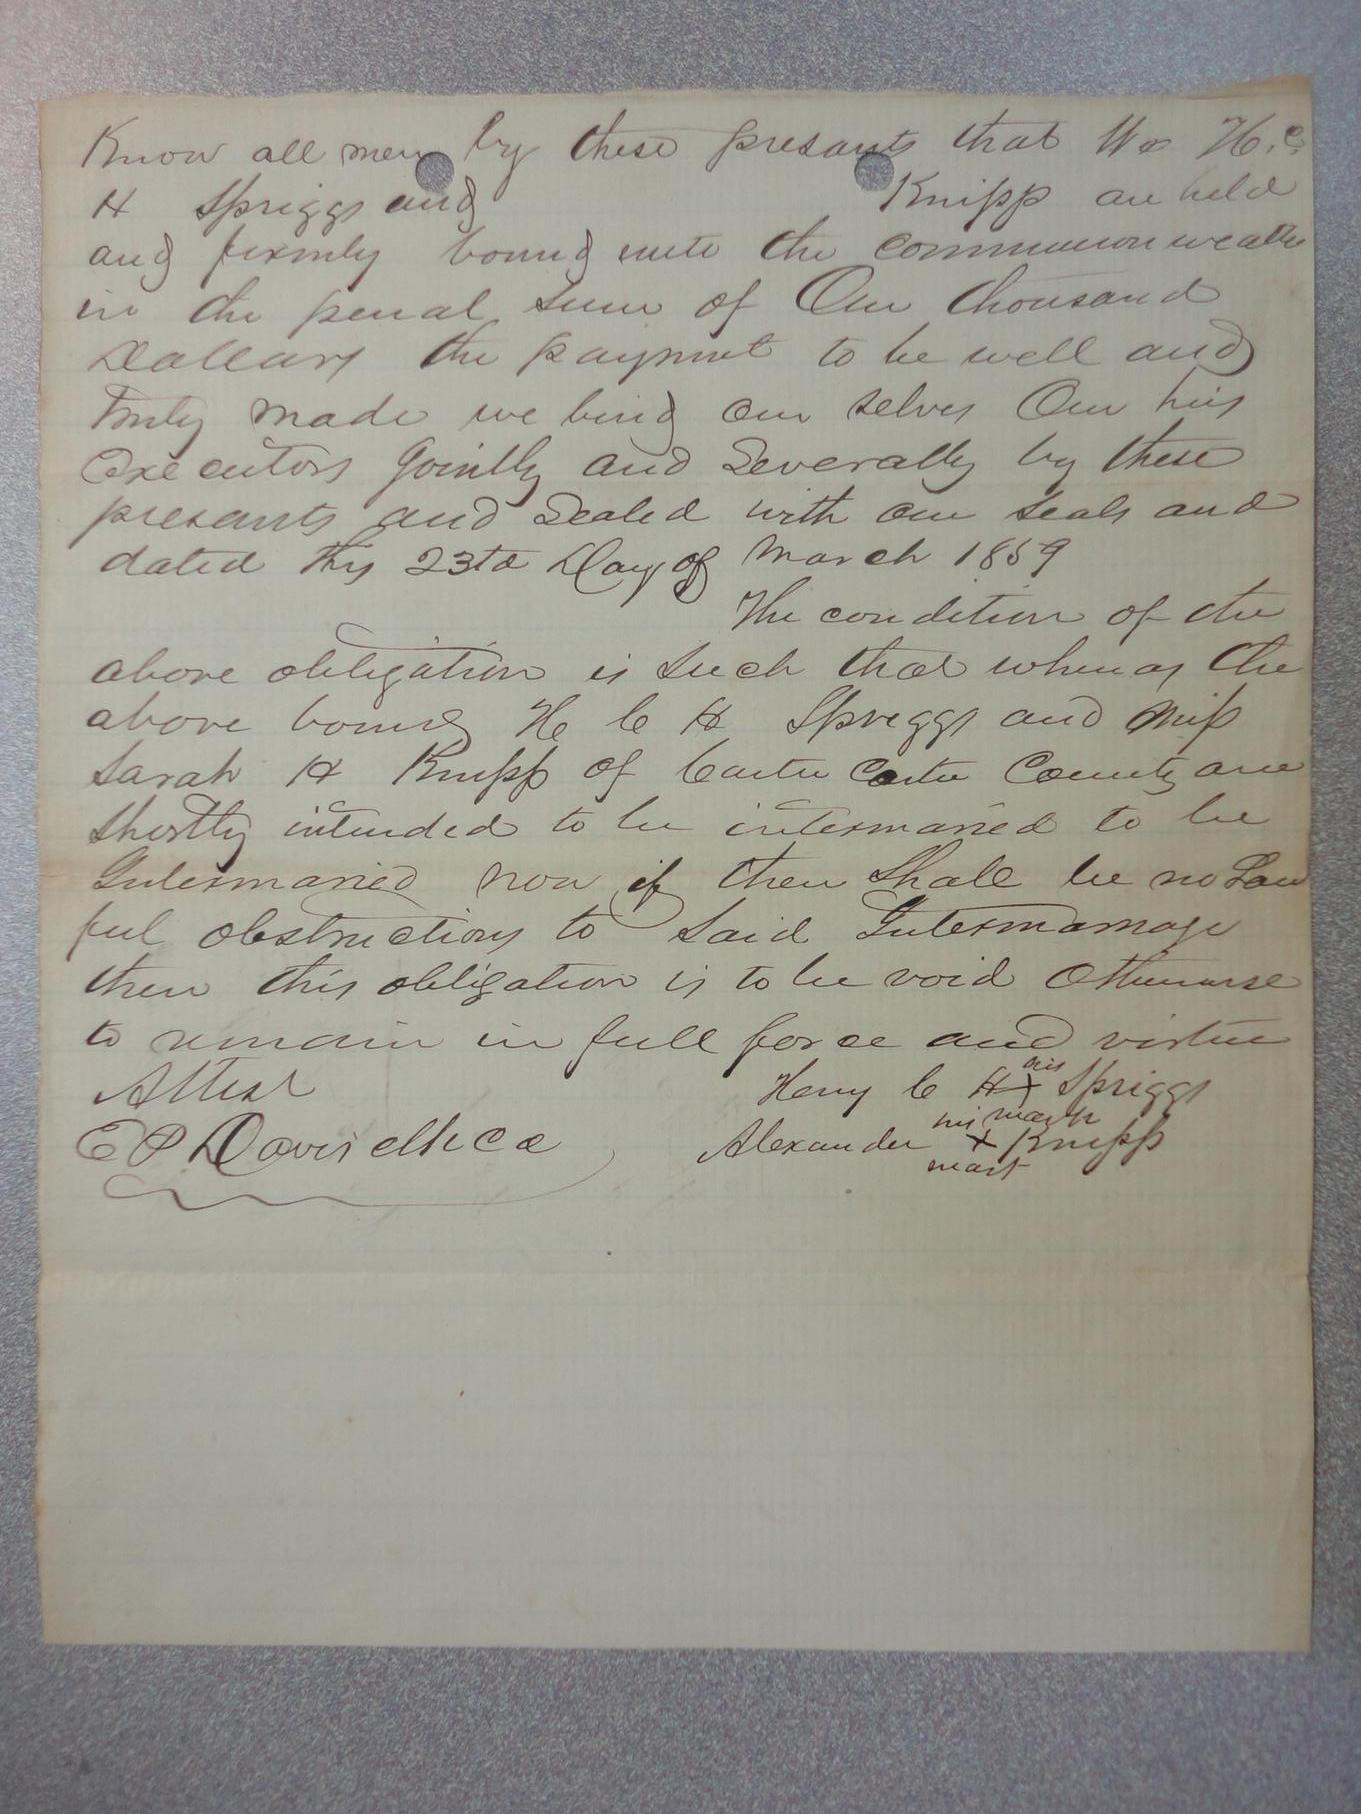 Know all men by these presants that We H. C.
H Spriggs and Knipp are held
and firmly bound unto the commonwealth
in the penal sum of One thousand
Dollars the paymnt to be well and
Truly made we bind our selves Our heirs
Executors Jointly and Severally by these
presants and Sealed with our seals and
dated this 23td Day of March 1859
The condition of the
above obligation is such that whereas the
above bound H C H Spriggs and Miss
Sarah H Knipp of Carter Carter County are
shortly intended to be intermaried to be
Intermaried now if then Shall be no Law
ful obstructions to Said Intermarriage
then this obligation is to be void Otherwise
to remain in full force and virtue
Attest Henry C H his X mark Spriggs
E P Davis Alexander his X mark Knipp